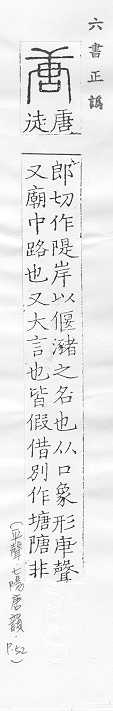 六書正譌
唐
徒
郎切作隄岸以偃瀦之名也从口象形庚聲
又廟中路也又大言也皆假借別作塘隚非
(平聲七陽唐韻. P.52)